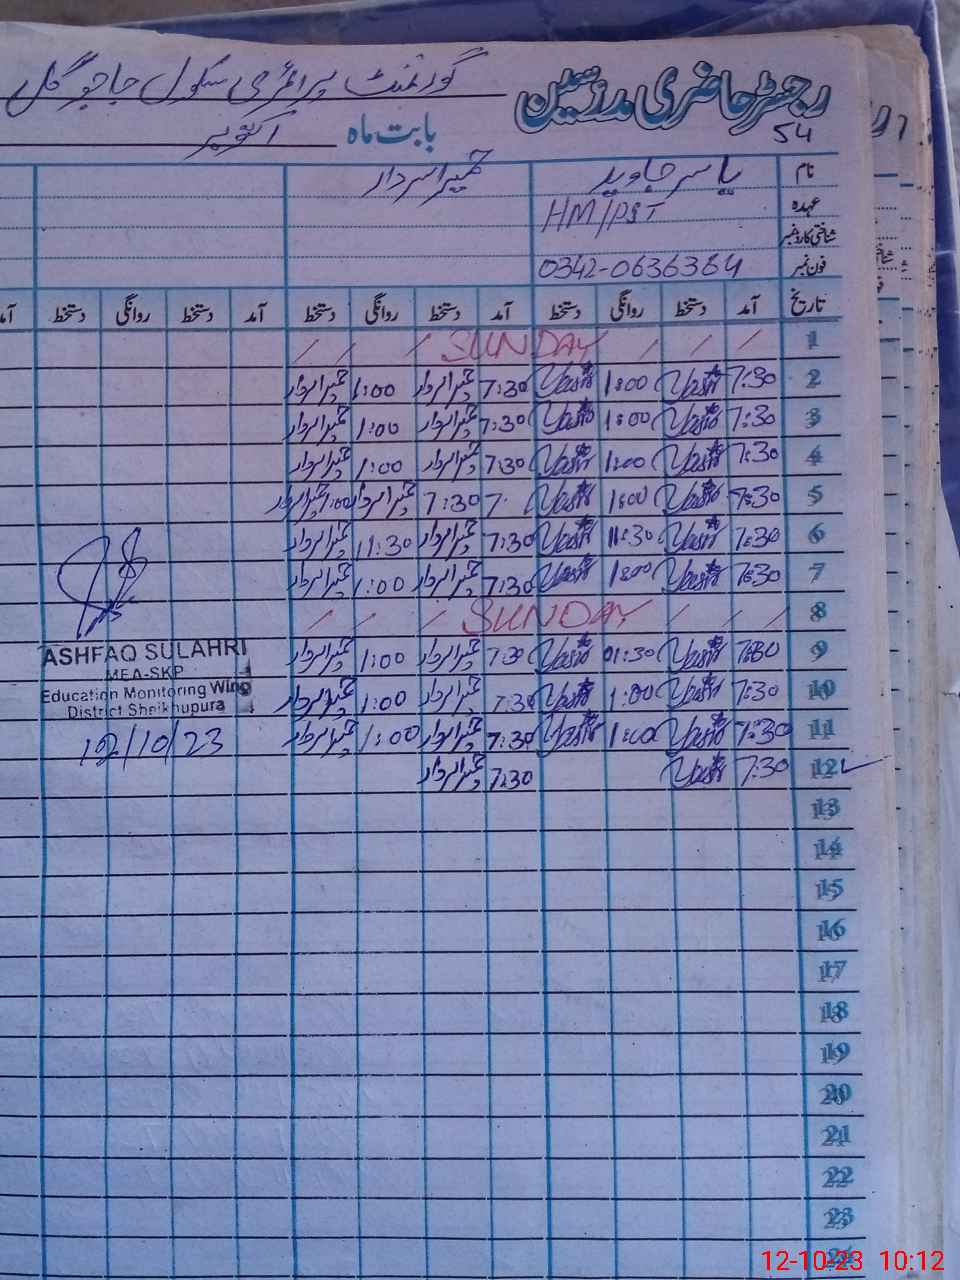 رجسٹر حاضری مدرسین گورنمنٹ پرائمری سکول
54
بابت ماہ اکتوبر
نام یاسر جاوید سردار
عہدہ HM/PST
شناختی کارڈ نمبر
فون نمبر 0342-0636364
تاریخ آمد دستخط روانگی دستخط آمد دستخط روانگی دستخط آمد دستخط روانگی دستخط آمد
1 SUNDAY
2 7:30 Yasir 1:00 Yasir 7:30 1:00
3 7:30 Yasir 1:00 Yasir 7:30 1:00
4 7:30 Yasir 1:00 Yasir 7:30 1:00
5 7:30 Yasir 1:00 Yasir 7. 7:30 1:00
6 7:30 Yasir 11:30 Yasir 7:30 11:30
7 7:30 Yasir 1:00 Yasir 7:30 1:00
8 SUNDAY
9 7:30 Yasir 01:30 Yasir 7:30 1:00
10 7:30 Yasir 1:00 Yasir 7:30 1:00
11 7:30 Yasir 1:00 Yasir 7:30 1:00
12 7:30 Yasir 7:30
ASHFAQ SULAHRI
MEA-SKP
Education Monitoring Wing
District Sheikhupura
12/10/23
13
14
15
16
17
18
19
20
21
22
23
24
12-10-23 10:12